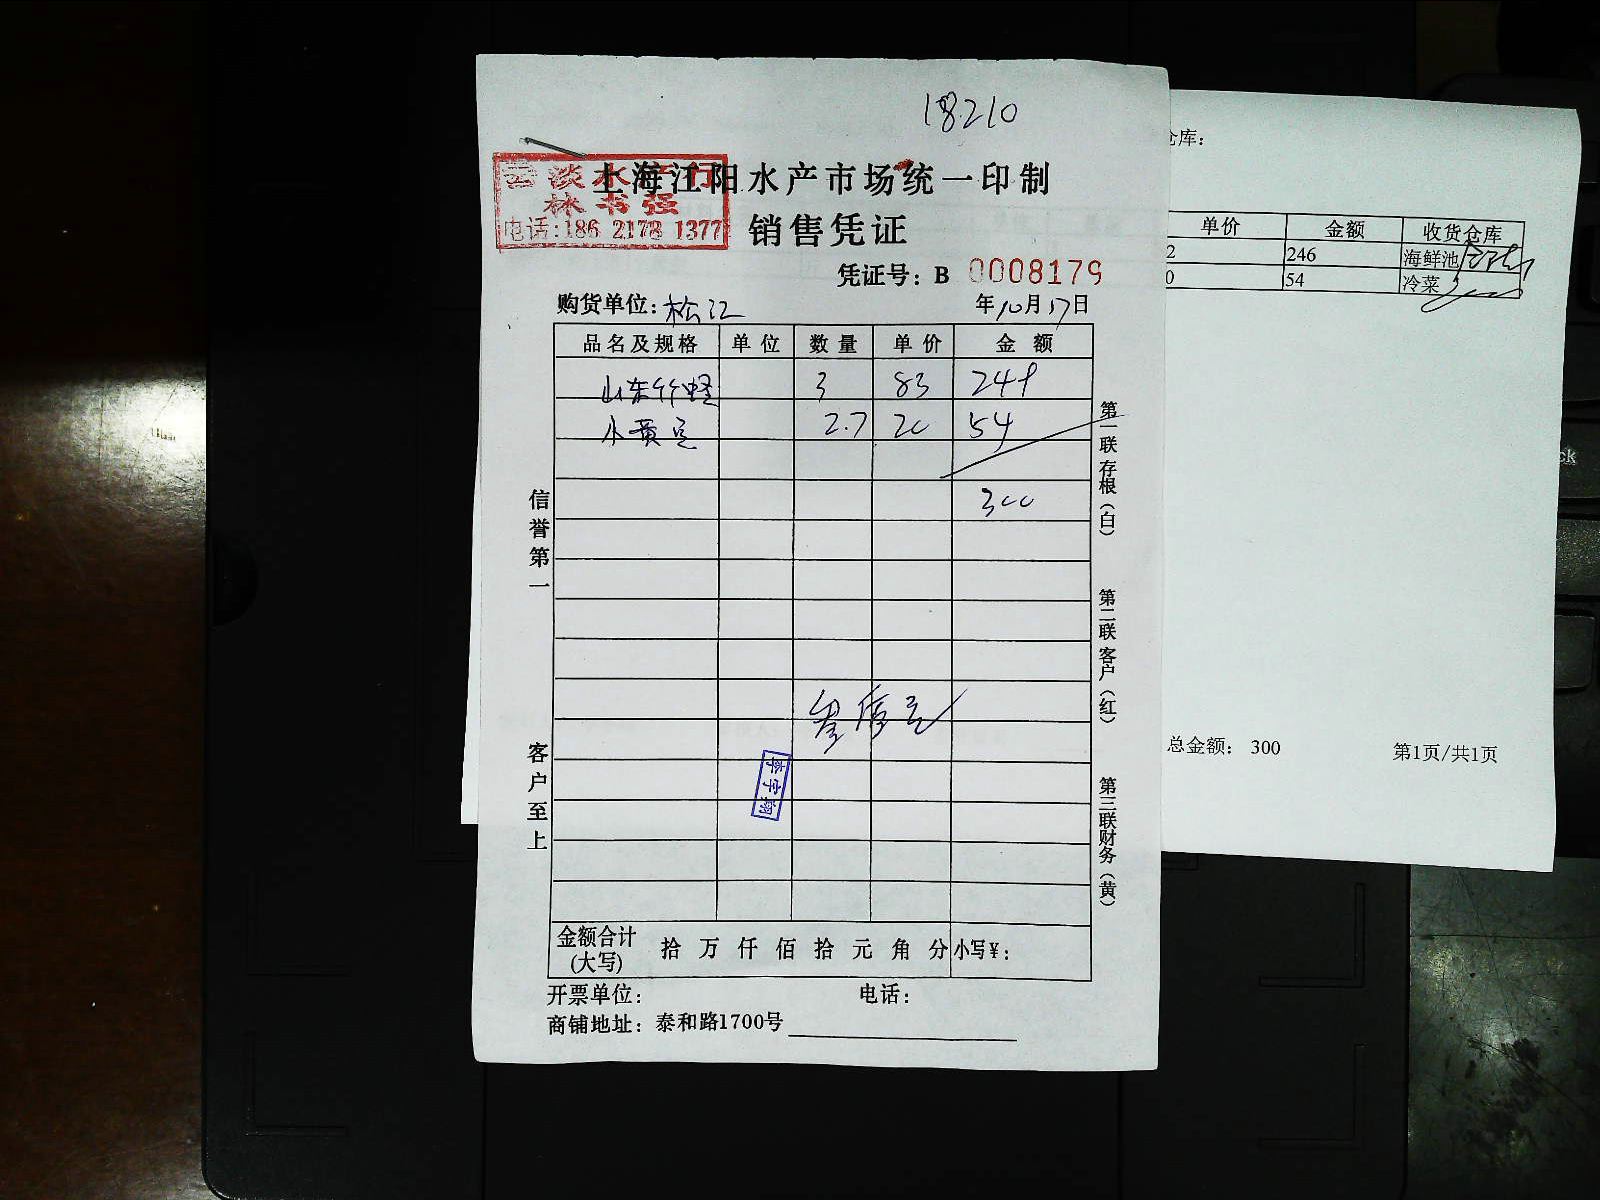 18210
云淡水产行
林书强
电话:186 2178 1377
上海江阳水产市场统一印制
销售凭证
凭证号: B 0008179
购货单位: 松江 年10月17日
品名及规格 单位 数量 单价 金额
山东竹蛏 3 83 249
小黄 2.7 20 54
300
信誉第一
客户至上
第一联存根(白)
第二联客户(红)
第三联财务(黄)
李宇翔
金额合计(大写) 拾 万 仟 佰 拾 元 角 分 小写¥:
开票单位: 电话:
商铺地址: 泰和路1700号
仓库:
单价 金额 收货仓库
2 246 海鲜池
0 54 冷菜
总金额: 300 第1页/共1页